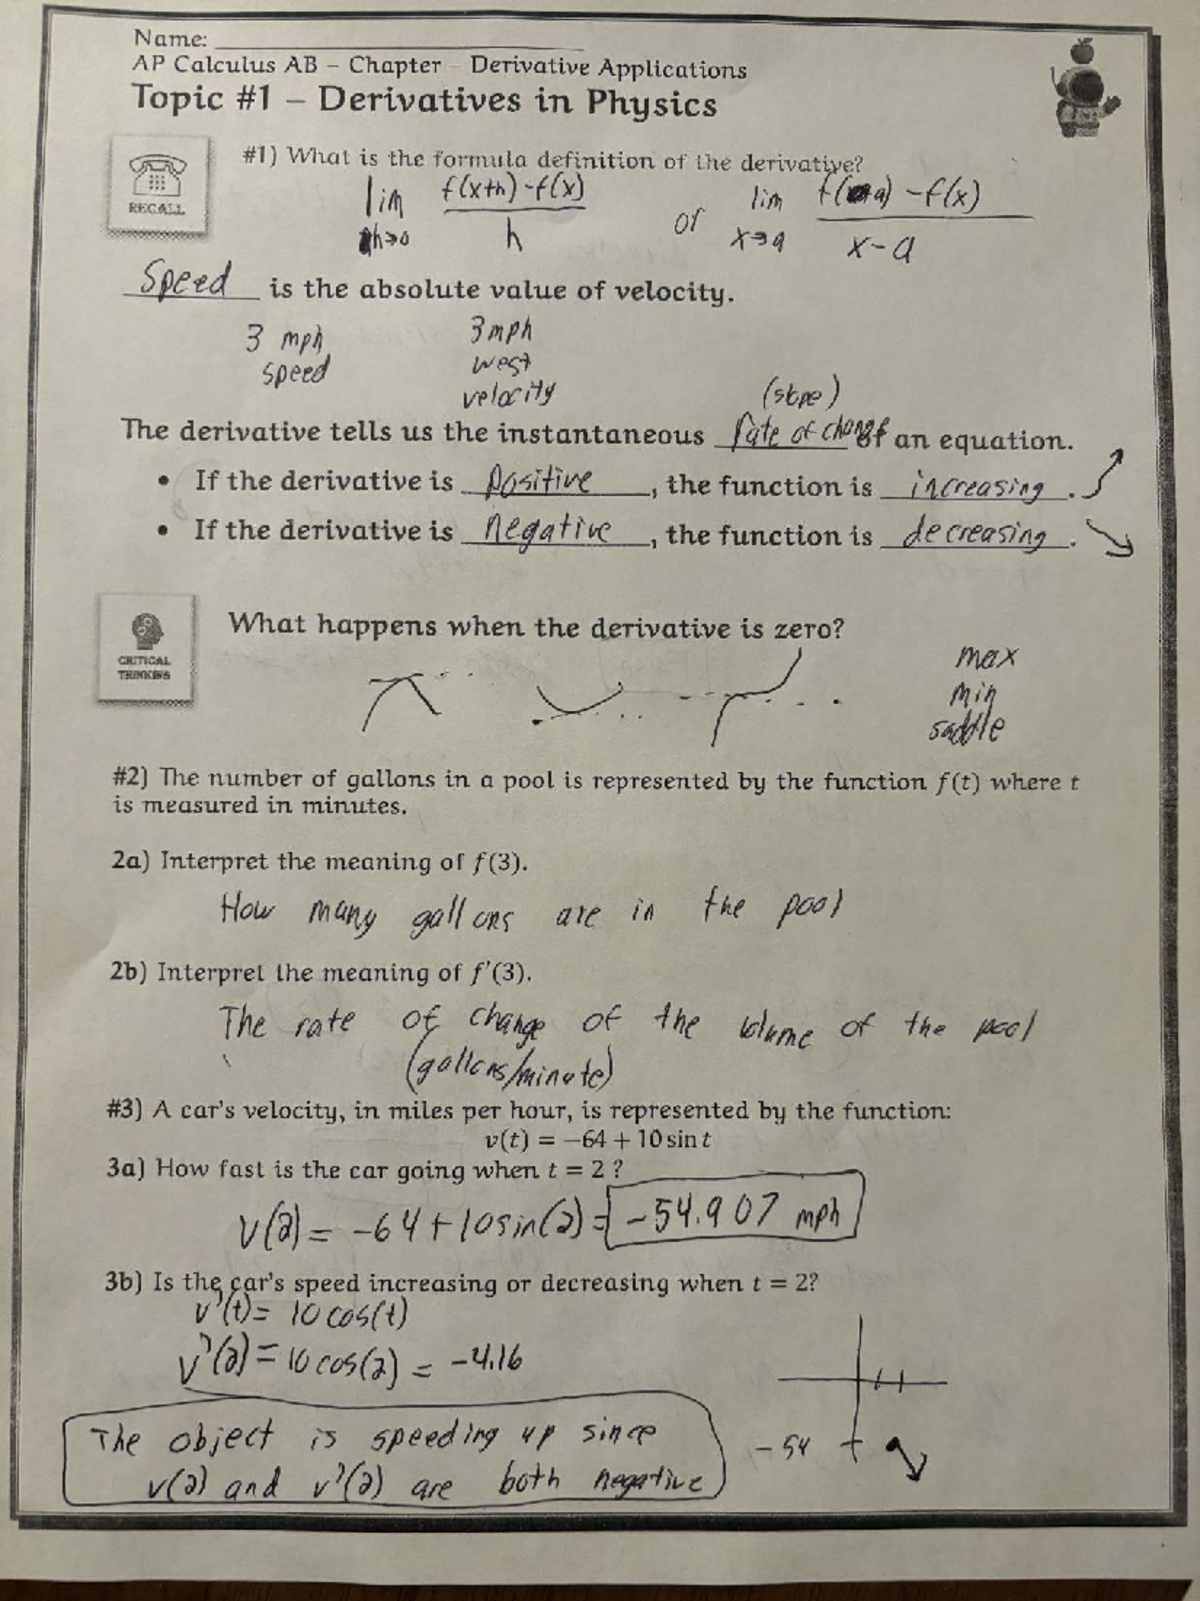 Name: ____________
AP Calculus AB – Chapter – Derivative Applications
Topic #1 – Derivatives in Physics
RECALL
#1) What is the formula definition of the derivative?
lim h→0 f(x+h)-f(x) / h or lim x→a f(a) -f(x) / x-a
Speed is the absolute value of velocity.
3 mph 3mph
speed west
velocity
(slope)
The derivative tells us the instantaneous rate of change of an equation.
• If the derivative is positive, the function is increasing.
• If the derivative is negative, the function is decreasing.
CRITICAL THINKING
What happens when the derivative is zero?
max
min
saddle
#2) The number of gallons in a pool is represented by the function f(t) where t
is measured in minutes.
2a) Interpret the meaning of f(3).
How many gallons are in the pool
2b) Interpret the meaning of f'(3).
The rate of change of the volume of the pool
(gallons/minute)
#3) A car's velocity, in miles per hour, is represented by the function:
v(t) = −64 + 10 sin t
3a) How fast is the car going when t = 2 ?
v(2) = -64 + 10sin(2) = -54.907 mph
3b) Is the car's speed increasing or decreasing when t = 2?
v'(t) = 10 cos(t)
v'(2) = 10 cos(2) = -4.16
The object is speeding up since
v(2) and v'(2) are both negative
-54